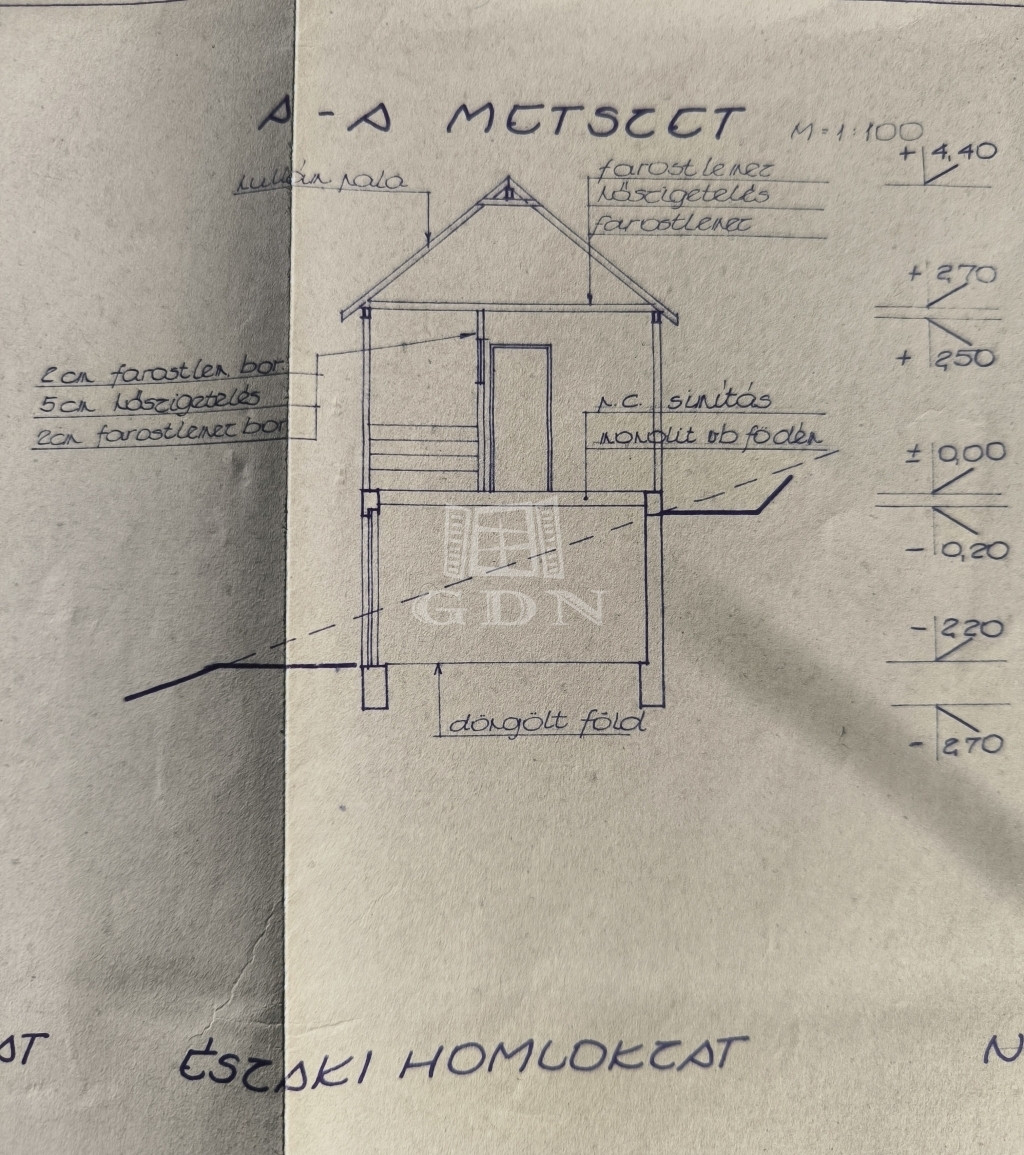 A-A METSZET M=1:100
hullám pala
farostlemez
hőszigetelés
farostlemez
+4,40
+2,70
+2,50
2cm farostlem bor
5cm hőszigetelés
2cm farostlemez bor
r.c. simítás
monolit vb födém
±0,00
-0,20
GDN
-2,20
döngölt föld
-2,70
AT
ÉSZAKI HOMLOKZAT
N